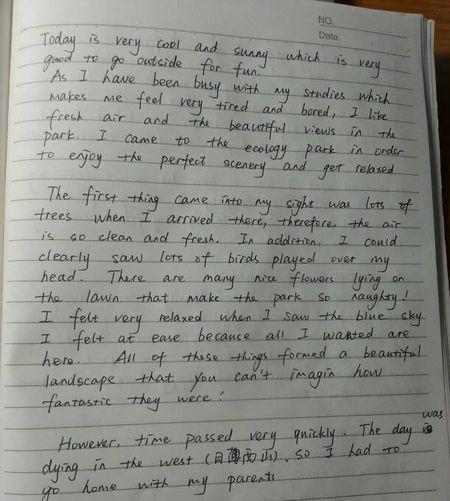 NO.
Date.
Today is very cool and sunny which is very
good to go outside for fun.
As I have been busy with my studies which
makes me feel very tired and bored, I like
fresh air and the beautiful views in the
park. I came to the ecology park in order
to enjoy the perfect scenery and get relaxed
The first thing came into my sight was lots of
trees when I arrived there, therefore, the air
is so clean and fresh. In addition. I could
clearly saw lots of birds played over my
head. There are many nice flowers lying on
the lawn that make the park so naughty!
I felt very relaxed when I saw the blue sky
I felt at ease because all I wanted are
here. All of these things formed a beautiful
landscape that you can't imagin how
fantastic they were!
However, time passed very quickly. The day was
dying in the west (日薄西山). so I had to
go home with my parents